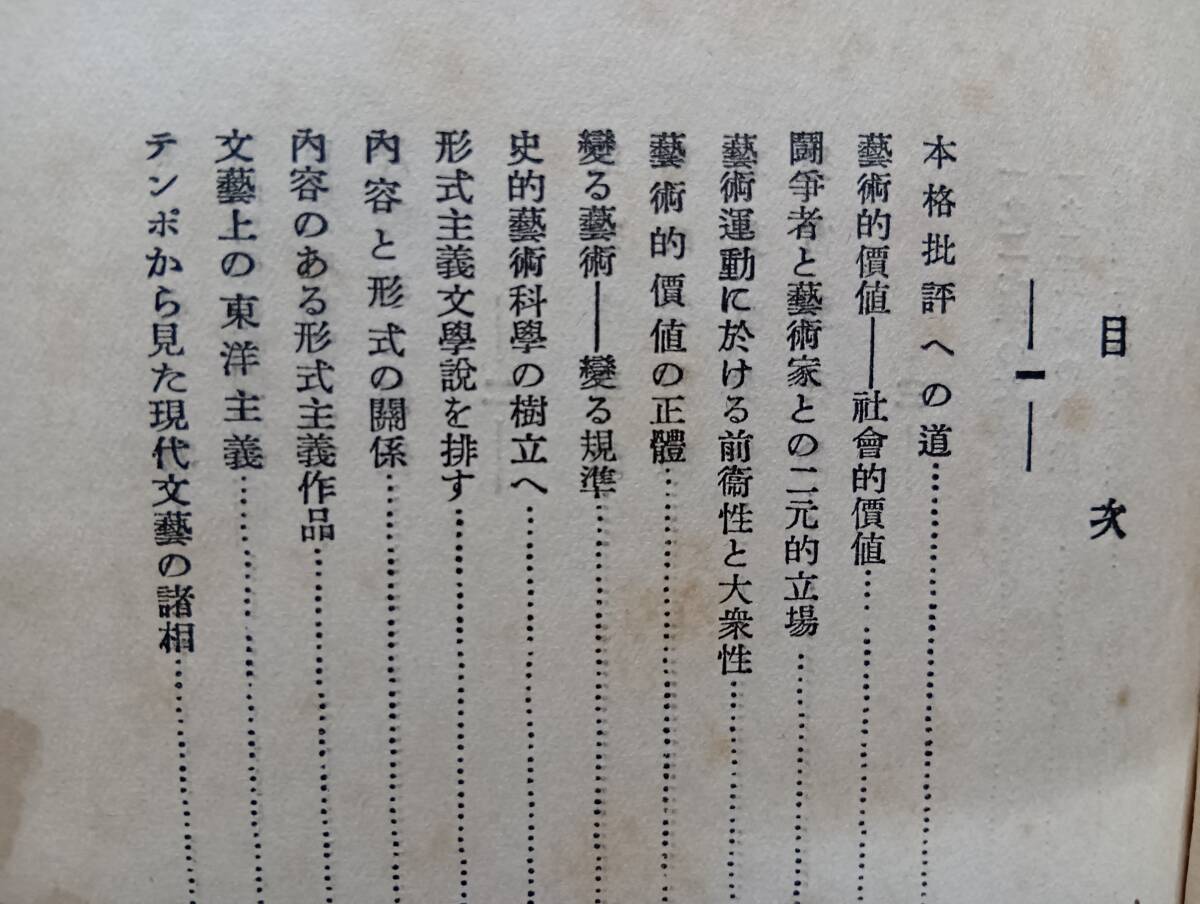 目次
―一―
本格批評への道……………………
藝術的價値――社會的價値……………………
鬪爭者と藝術家との二元的立場……………………
藝術運動に於ける前衞性と大衆性……………………
藝術的價値の正體……………………
變る藝術――變る規準……………………
史的藝術科學の樹立へ……………………
形式主義文學說を排す……………………
內容と形式の關係……………………
內容のある形式主義作品……………………
文藝上の東洋主義……………………
テンポから見た現代文藝の諸相……………………